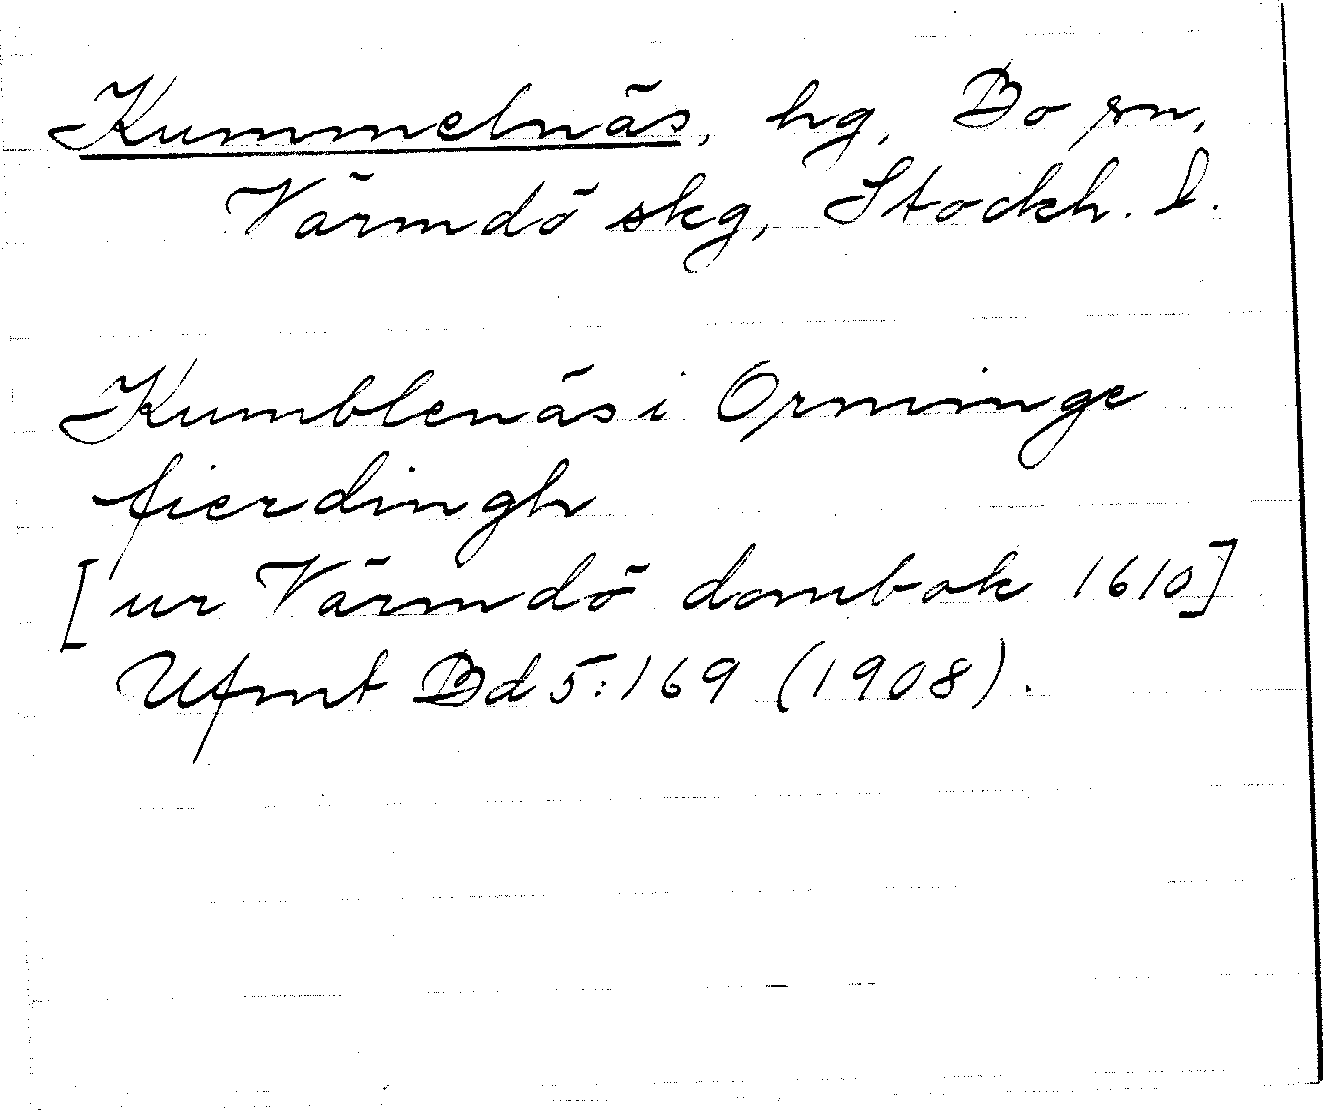 Kummelnäs, hg, Bo sn,
Värmdö skg, Stockh. l.
Kumblenäs i Orminge
fierdingh
[ur Värmdö dombok 1610]
Ufmt Bd 5:169 (1908).